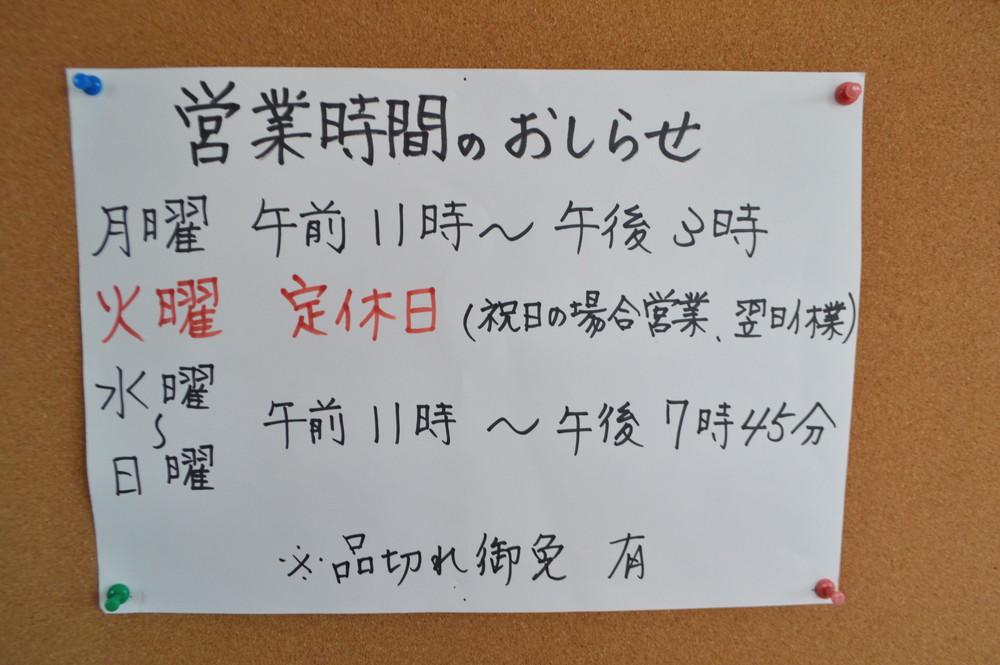 営業時間のおしらせ
月曜 午前11時～午後3時
火曜 定休日(祝日の場合営業、翌日休業)
水曜
～ 午前11時～午後7時45分
日曜
※品切れ御免 有